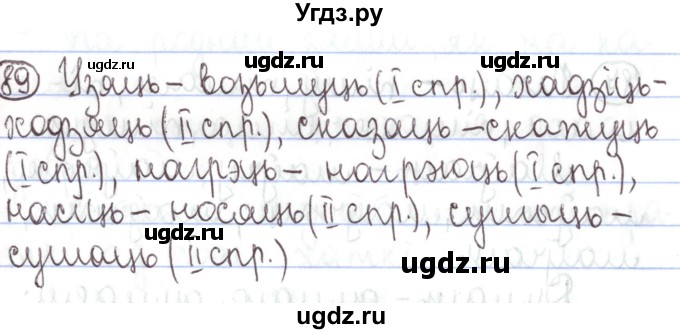 Угдз.ру
89) Узяць – возьмуць (I спр.), хадзіць –
ходзяць (II спр.), сказаць – скажуць
(I спр.), нагрэць – нагрэюць (I спр.),
насіць – носяць (II спр.), сушыць –
сушаць (II спр.)
ugdz.ru
ugdz.ru
ugdz.ru
ugdz.ru
ugdz.ru